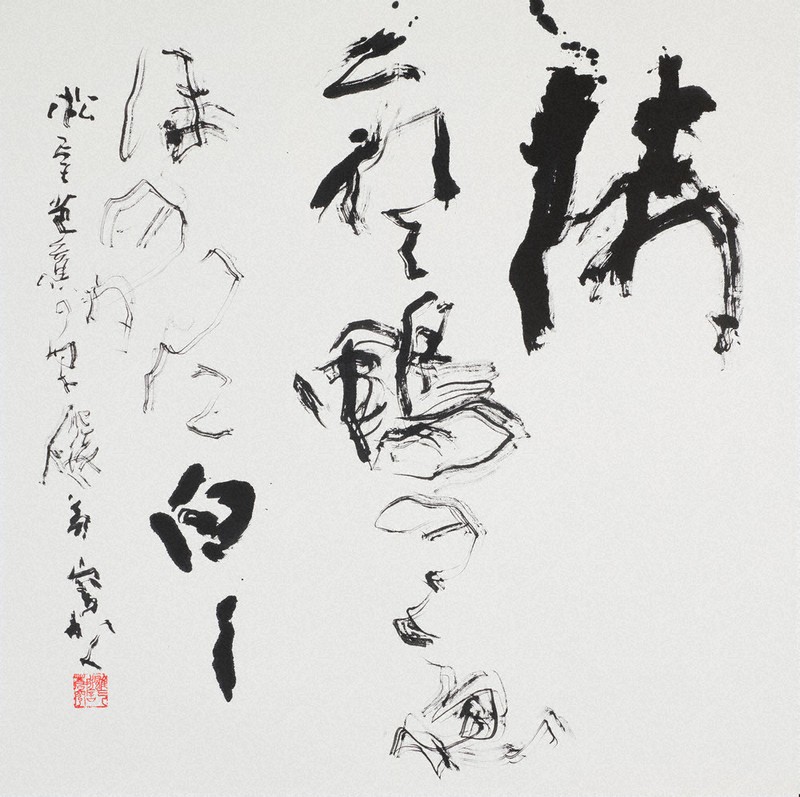 海
くれて鴨のこゑ
ほのかに白し
松尾芭蕉の